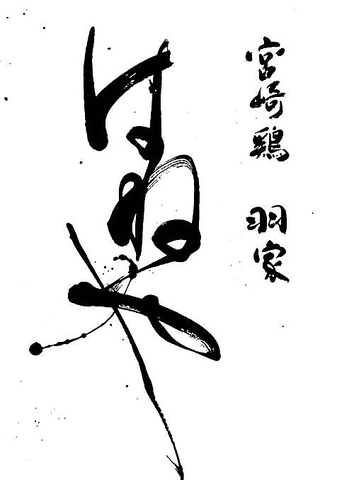 宮崎鶏 羽家
はねや